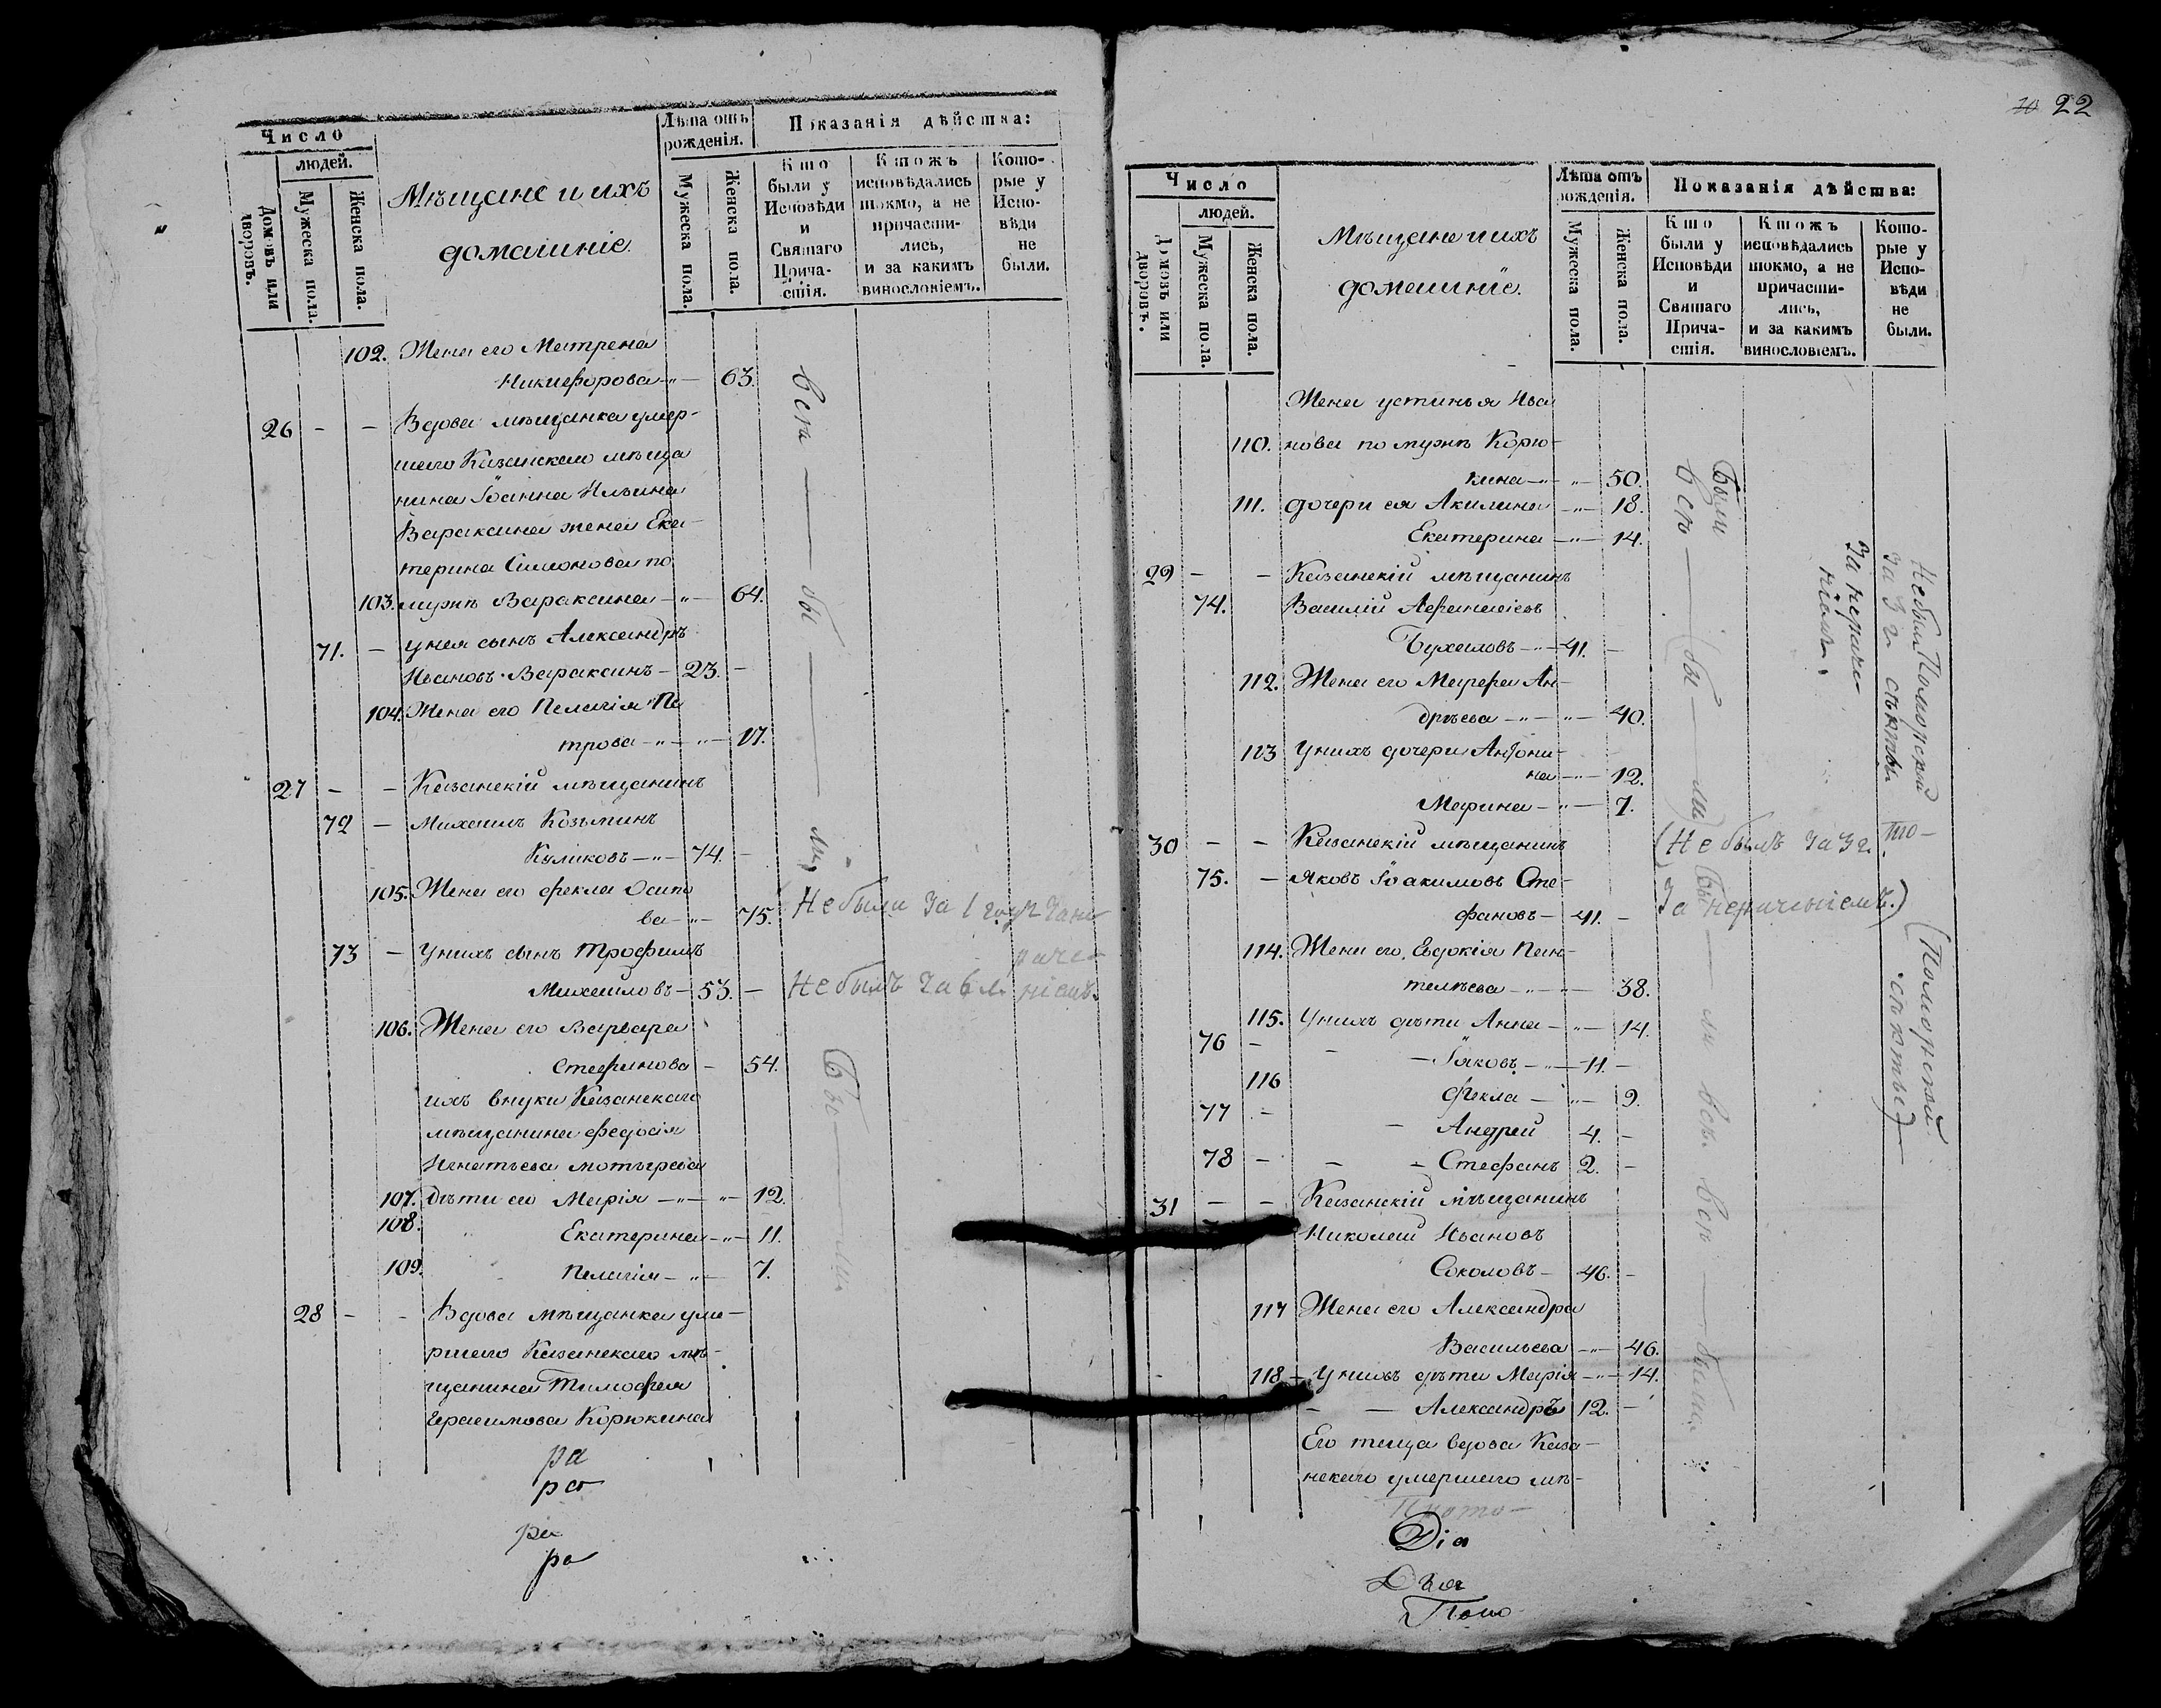 Число
людей.
Домовъ или дворовъ.
Мужеска пола.
Женска пола.
Мѣщане и ихъ
домашніе
Лѣта отъ
рожденія.
Мужеска пола.
Женска пола.
Показанія дѣйства:
Кто
были у
Исповѣди
и
Святаго
Прича-
стія.
Ктожъ
исповѣдались
токмо, а не
причасти-
лись,
и за какимъ
винословіемъ.
Кото-
рые у
Испо-
вѣди
не
были.
102. Жена его Матрена
Никифорова - " - 63.
26 - - Вдова мѣщанка умер-
шаго Казанскаго мѣща
нина Іоанна Ильина
Вараксина жена Ека-
терина Симонова по
103. мужѣ Вараксина - " - 64.
71. - У нея сынъ Александръ
Ивановъ Вараксинъ - 23. -
104. Жена его Пелагія Пе
трова - " - " - 17.
27 - - Казанскій мѣщанинъ
72 - Михаилъ Козьминъ
Куликовъ - " - 74. -
105. Жена его Фекла Осипо
ва - " - 75. Не были за 1 годъ за не
73 - У нихъ сынъ Трофимъ раче-
Михаиловъ - 53. - Не былъ за 6 л. ніемъ.
106. Жена его Варвара
Стефанова - 54.
ихъ внуки Казанскаго
мѣщанина Федосія
Игнатьева Мотыгрева
107. Дѣти его Марія - " - " - 12.
108. Екатерина - " - 11.
109. Пелагія - " - 7.
28 - - Вдова мѣщанка уме-
ршаго Казанскаго мѣ-
щанина Тимофея
Герасимова Корюкина
всѣ — бы — ли
Бы — ли
ра
ра
ра
ра
10 22
Число
людей.
Домовъ или дворовъ.
Мужеска пола.
Женска пола.
Мѣщане и ихъ
домашніе.
Лѣта отъ
рожденія.
Мужеска пола.
Женска пола.
Показанія дѣйства:
Кто
были у
Исповѣди
и
Святаго
Прича-
стія.
Ктожъ
исповѣдались
токмо, а не
причасти-
лись,
и за какимъ
винословіемъ.
Кото-
рые у
Испо-
вѣди
не
были.
Жена Устинья Ива
110. нова по мужѣ Корю-
кина - " - " - 50.
111. дочери ея Акилина - " - 18.
Екатерина - " - 14.
29 - - Казанскій мѣщанинъ
74. Василій Афанасіевъ
Бухаловъ - " - 41. -
112. Жена его Марфа Ан-
дрѣева - " - " - 40.
113 У нихъ дочери Антони-
на - " - 12.
Марина - " - 7.
30 - - Казанскій мѣщанинъ (Не былъ за 3 г. по-
75. - Яковъ Іоакимовъ Сте-
фановъ - 41. - За нерачѣніемъ.)
114. Жена его Евдокія Пан-
телѣева - " - " - 38.
115. У нихъ дѣти Анна - " - 14.
76 - - - Іаковъ - " - 11. -
116 Фекла - " - 9.
77 - - Андрей 4. -
78 - - - Стефанъ 2. -
31 - - Казанскій мѣщанинъ
Николай Ивановъ
Соколовъ - 46. -
117 Жена его Александра
Васильева - " - 46.
118 - У нихъ дѣти Марія - " - 14.
- - Александръ 12. -
Его теща вдова Каза-
нскаго умершаго мѣ-
Были
всѣ — бы — ли
всѣ — были
За нераче-
ніемъ.
Не были Поморской
за 3 г. секты
(Поморской
секты)
Діа